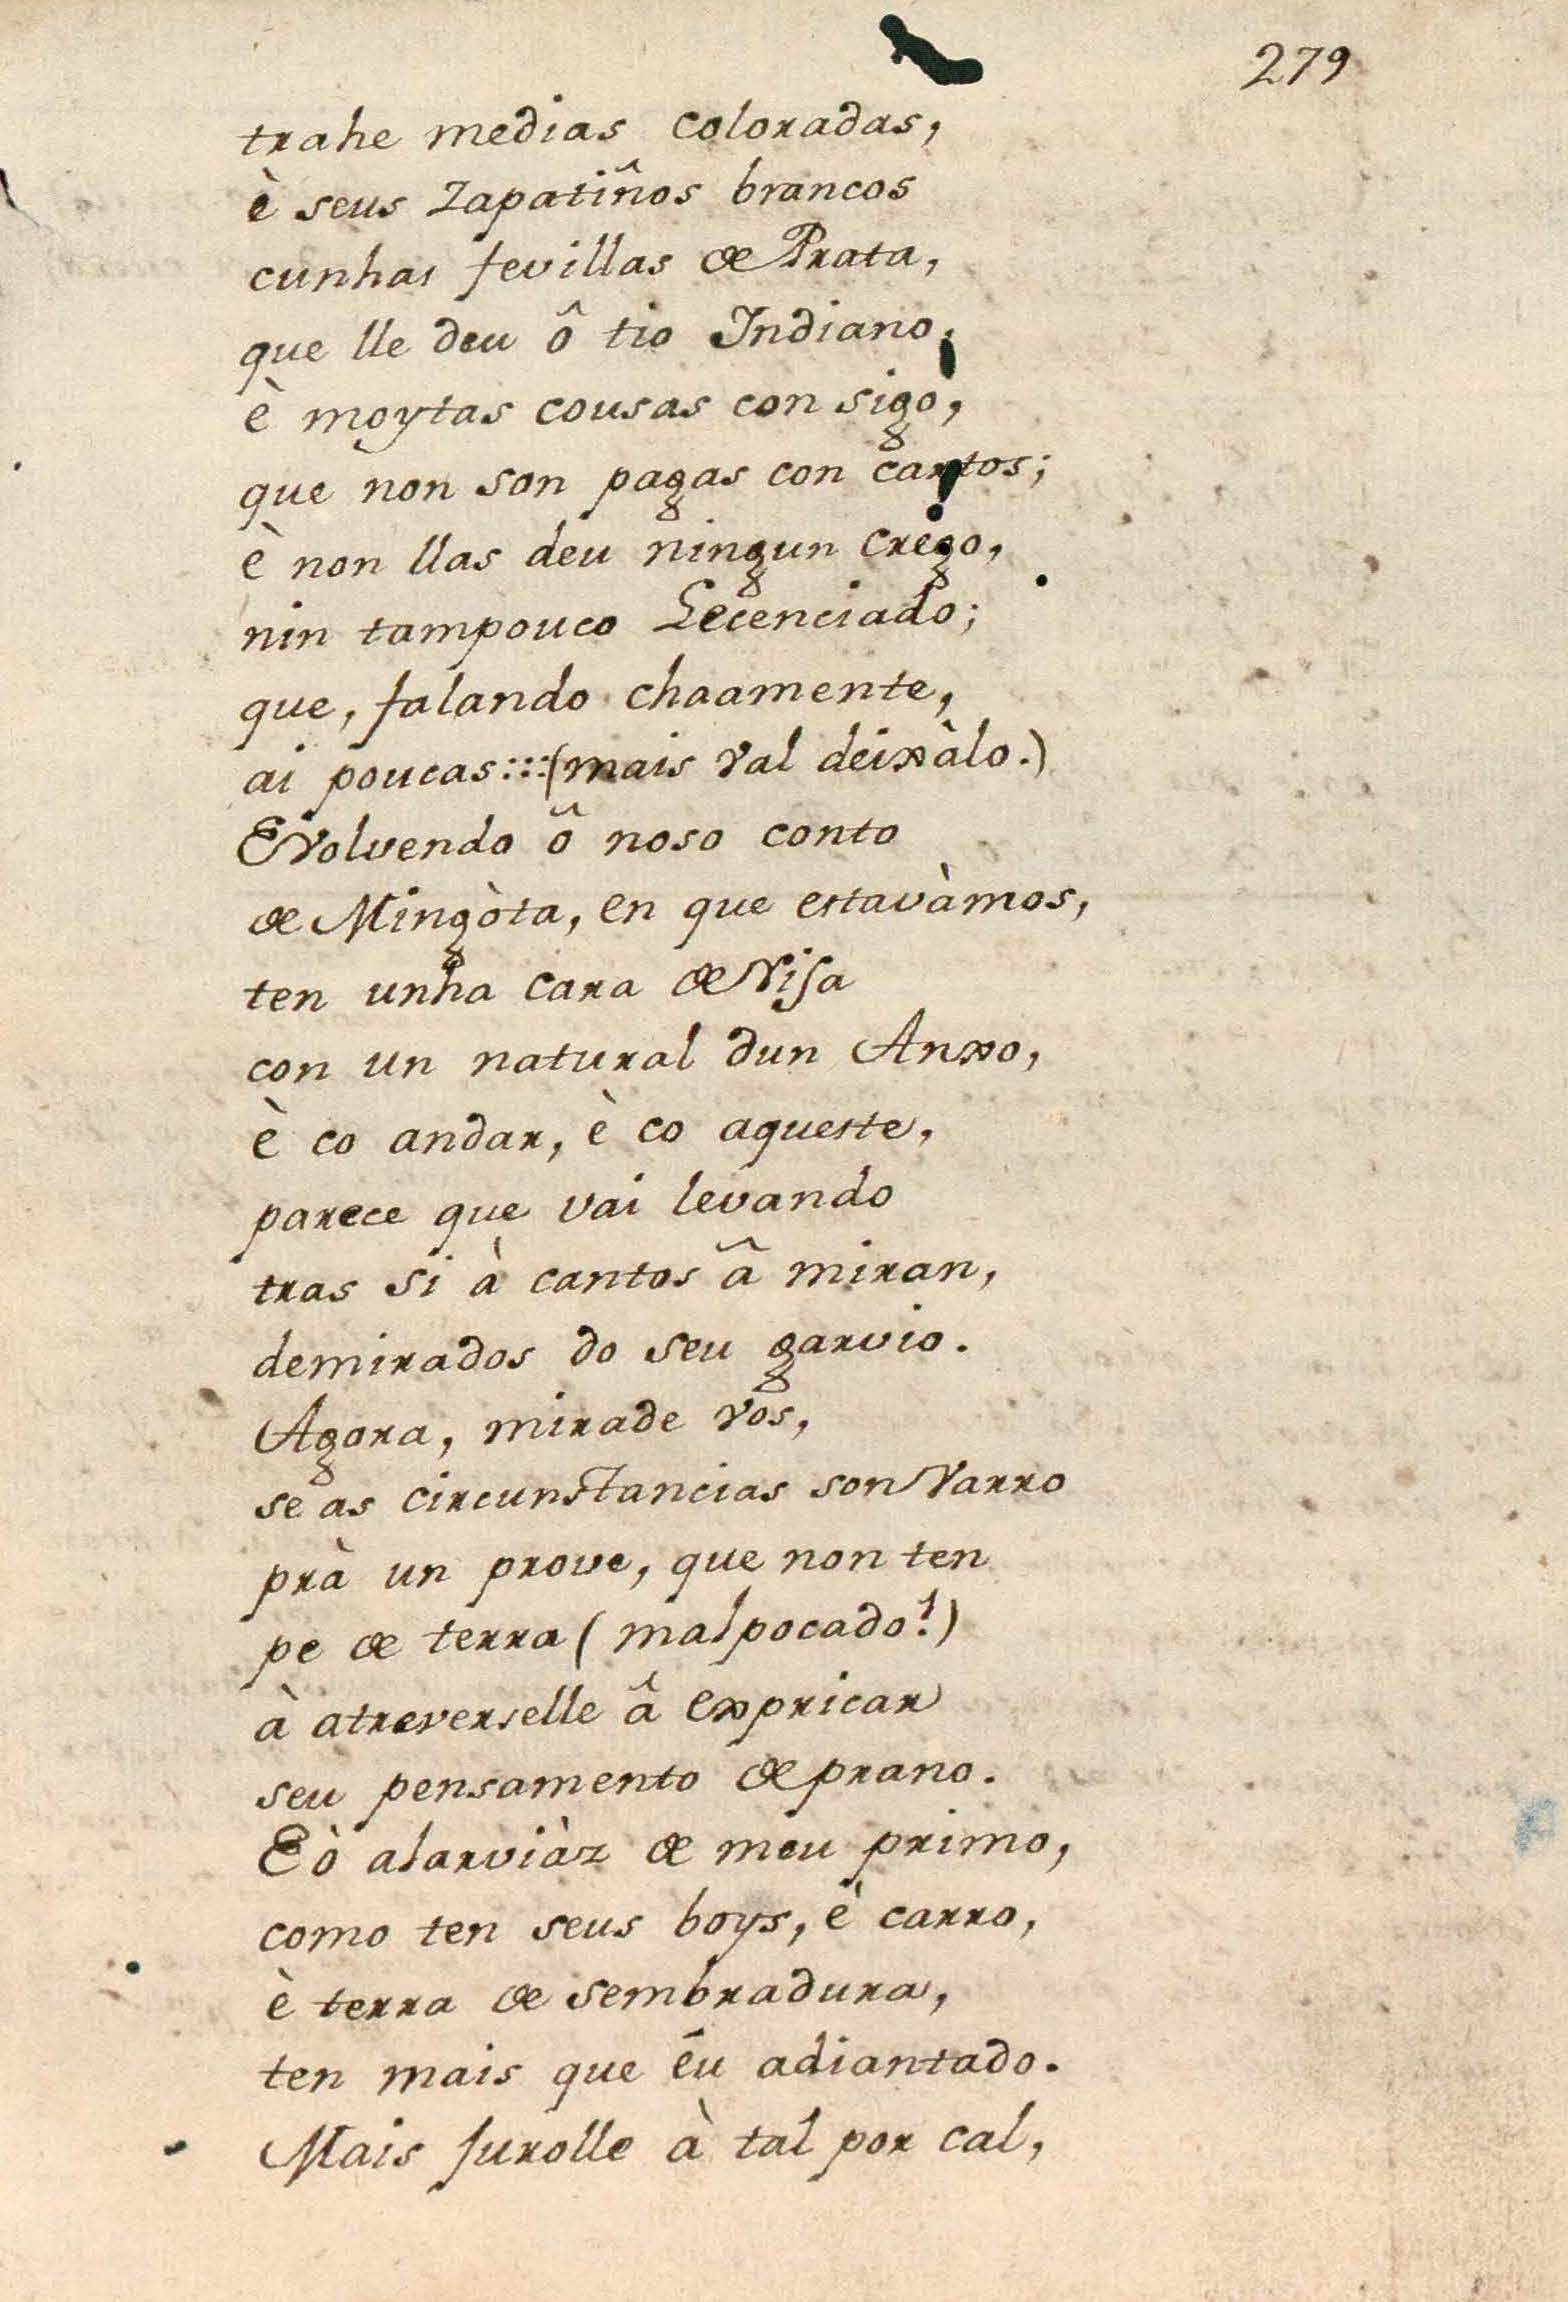 279
trahe medias coloradas,
è seus zapatiños brancos
cunhas fevillas de Prata,
que lle deu ô tio Indiano,
è moytas cousas con sigo,
que non son pagas con cartos;
è non llas deu ningun crego,
nin tampouco Lecenciado;
que, falando chaamente,
ai poucas:::(mais val deixàlo.)
E volvendo ô noso conto
de Mingòta, en que estavàmos,
ten unha cara de risa
con un natural dun Anxo,
è co andar, è co aqueste,
parece que vai levando
tras si à cantos â miran,
demirados do seu garvio.
Agora, mirade vos,
se as circunstancias son varro
prà un prove, que non ten
pe de terra (malpocado!)
à atreverselle â expricar
seu pensamento de prano.
E ò alarviàz de meu primo,
como ten seus boys, è carro,
è terra de sembradura,
ten mais que éu adiantado.
Mais jurolle à tal por cal,